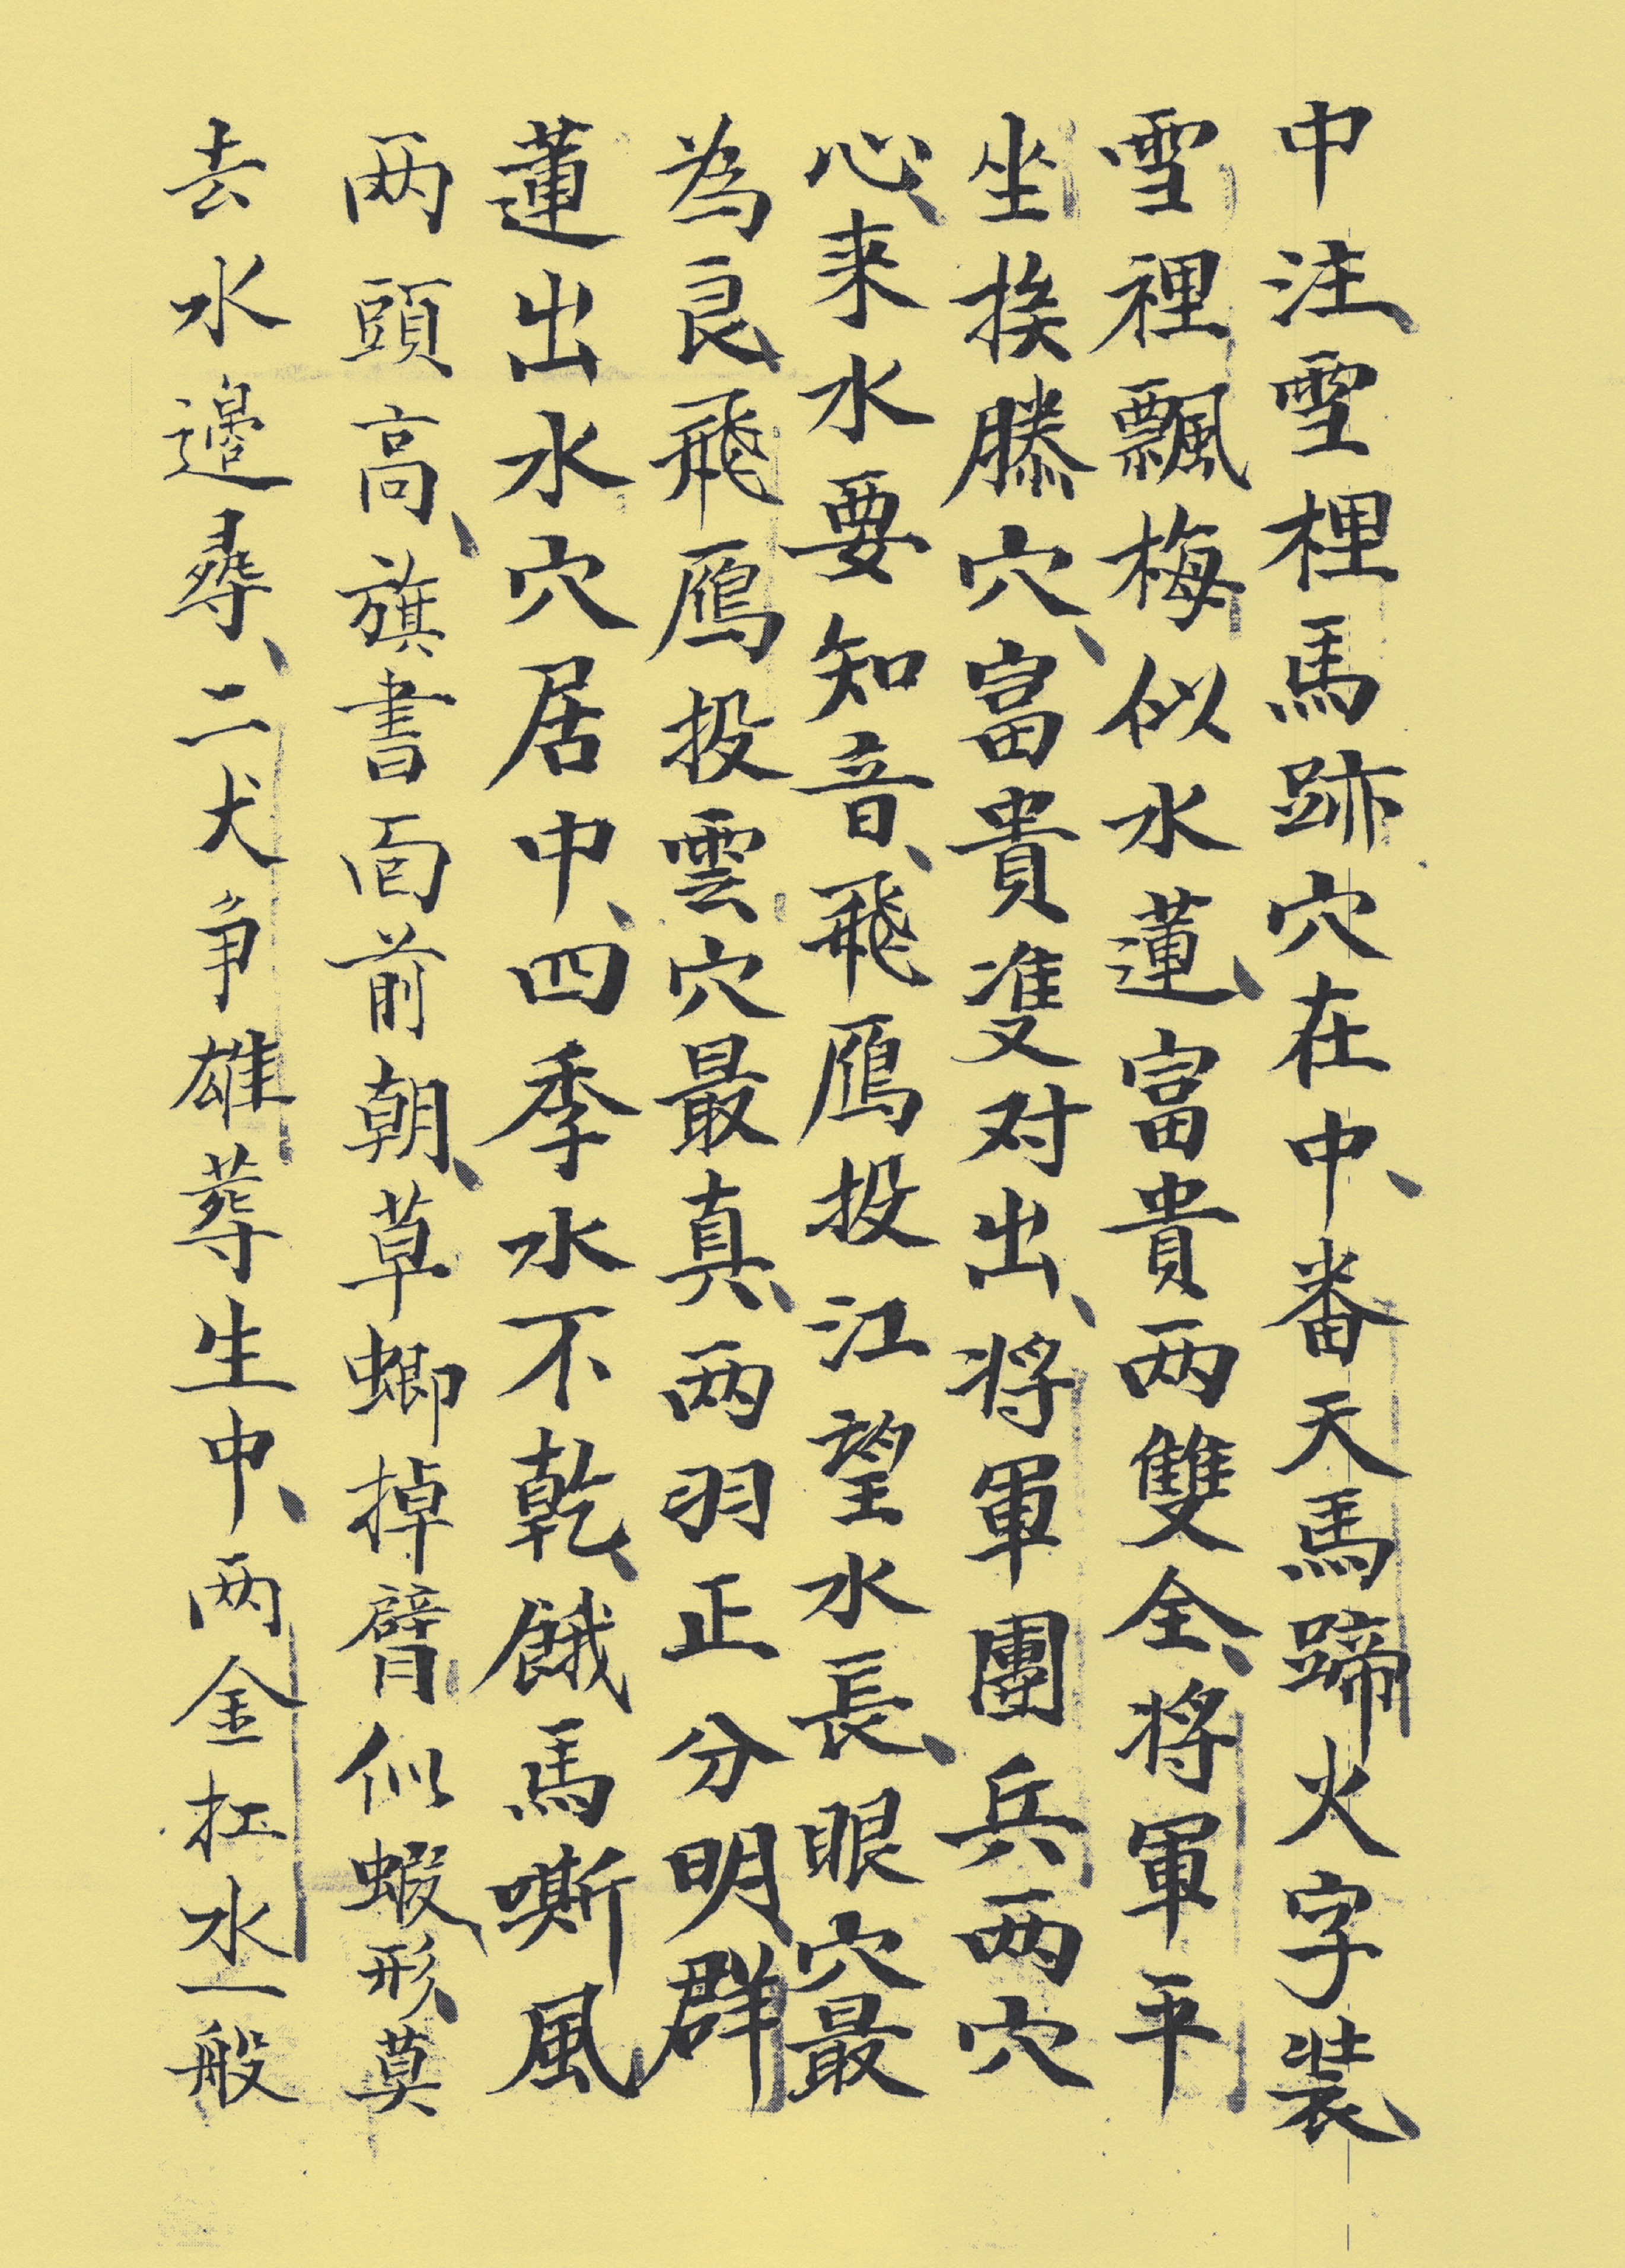 中注、雪裡馬跡穴在中、番天馬蹄火字裝、
雪裡飄梅似水蓮、富貴两雙全、将軍平
坐挨膝穴、富貴雙对出、将軍團兵两穴
心、来水要知音、飛鴈投江望水長、眼穴最
為良、飛鴈投雲穴最真、两羽正分明、群
蓮出水穴居中、四季水不乾、餓馬嘶風
两頭高、旗書面前朝、草蜢掉臂似蝦形、莫
去水邊尋、二犬争雄葬生中、两金扛水一般